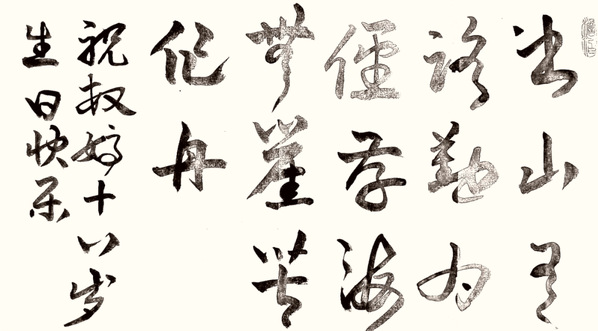 书山有
路勤为
径学海
無崖苦
作舟
祝叔婷十八岁
生日快乐